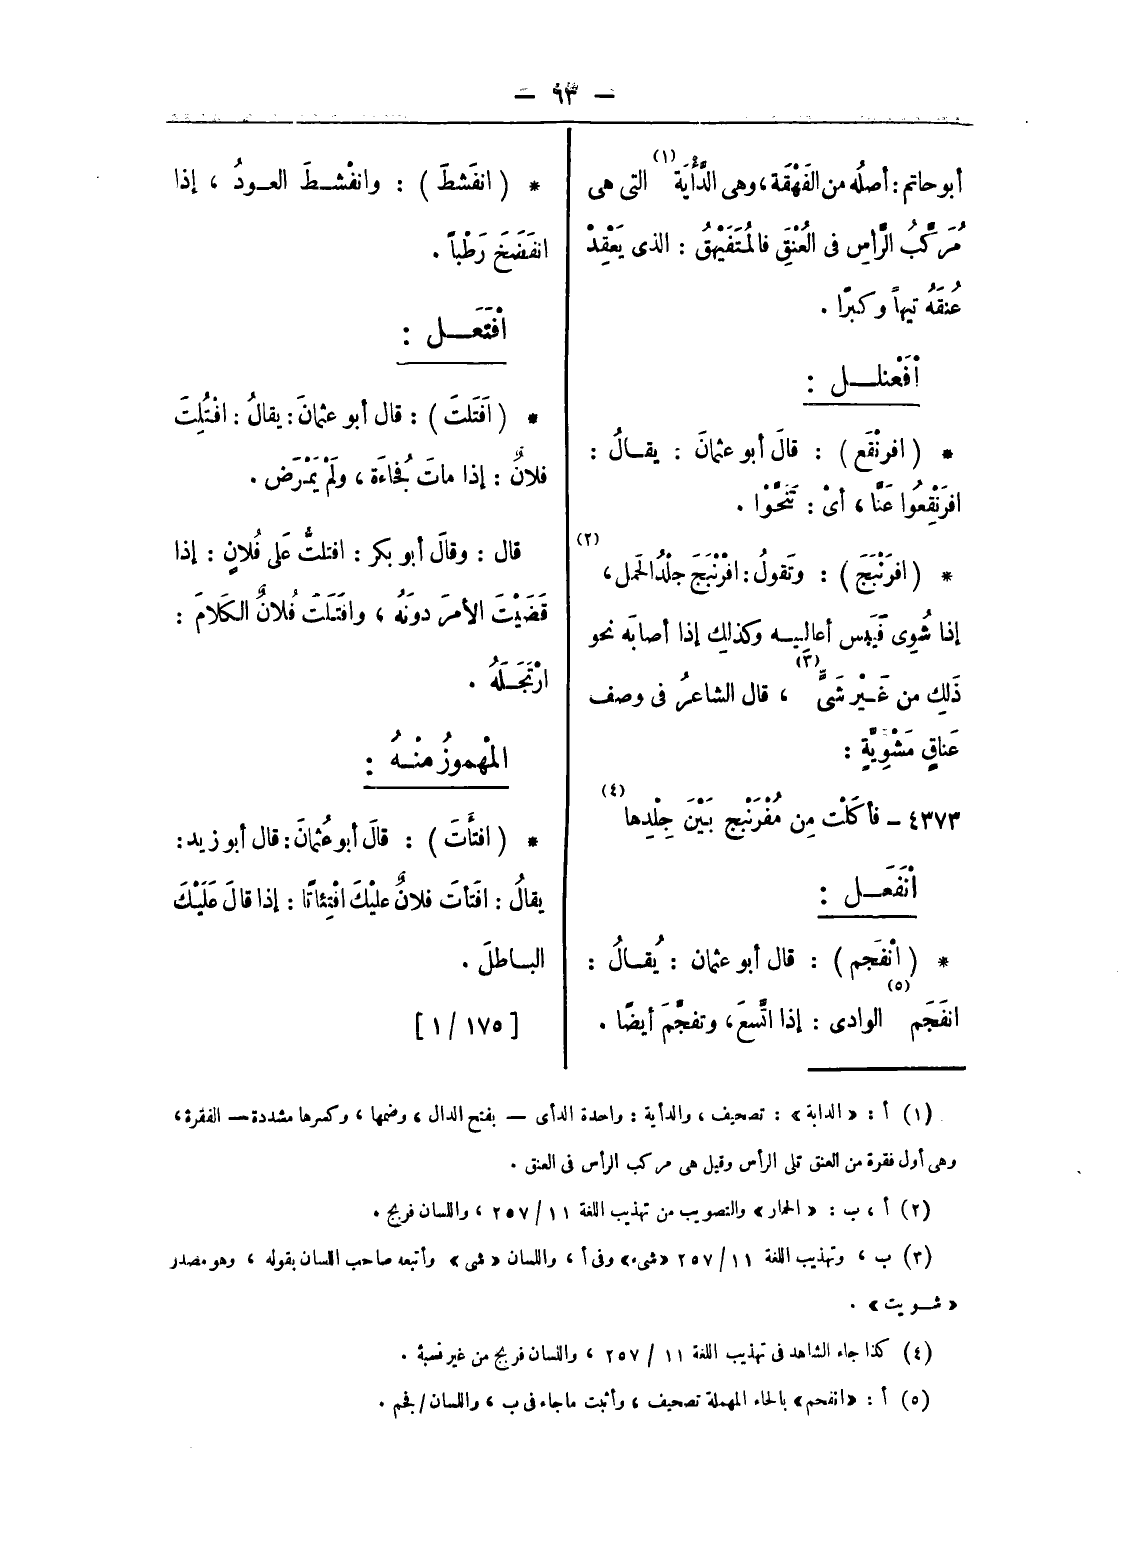 – ٦٣ –
أبو حاتم : أصلُه من الفَهْقَة ، وهى الدَّأْيَة (١) التى هى
مُرَكَّبُ الرَّأسِ فى العُنْقِ فالمُتَفَيْهِقُ : الذى يَعْقِدْ
عُنقَهُ تيهاً وكبرًا .
أَفْعَنْلَــل :
* ( افرنْقَع ) : قالَ أبو عثمانَ : يقــالُ :
افرَنْقِعُوا عَنَّا ، أىْ : تَنَحَّوْا .
* ( افرَنْبَجَ ) : وتَقولُ : افْرَنْبَجَ جلْدُ الحَمل (٢) ،
إذا شُوِى فَيَبِس أعاليــه وكذلِك إذا أصابَه نحو
ذَلِك من غَــيْر شَىٍّ (٣) ، قال الشاعرُ فى وصف
عَناقٍ مَشْوِيَّةٍ :
٤٣٧٣ – فأكَلْت مِن مُفْرَنْبِج بَيْنَ جِلْدِها (٤)
أنْفَعَــل :
* ( انْفَجم ) : قال أبو عثمان : يُقــالُ :
انفَجَم (٥) الوادى : إذا اتَّسعَ ، وتفجَّمَ أيضًا .
* ( انفَشطَ ) : وانفْشــطَ العــودُ ، إذا
انفَضَخَ رَطْباً .
افْتَعَــل :
* ( افتَلتَ ) : قال أبو عثمانَ : يقالُ : افْتُلِتَ
فلانٌ : إذا ماتَ فُجَاءَة ، ولَمْ يَمْرَض .
قال : وقالَ أبو بكر : افتلتُّ عَلى فُلانٍ : إذا
قَضَيْتَ الأمرَ دونَهُ ، وافتَلَتَ فُلانٌ الكَلامَ :
ارْتَجَــلَهُ .
المْهموزُ منْــهُ :
* ( افتأَتَ ) : قالَ أبو عُثمانَ : قال أبو زيد :
يقالُ : افتَأتَ فلانٌ عليْكَ افْتِئاتًا : إذا قالَ عَلَيْكَ
البــاطلَ .
[ ١٧٥ / ١ ]
(١) أ : « الدابة » : تصحيف ، والدأية : واحدة الدأى — بفتح الدال ، وضمها ، وكسرها مشددة — الفقرة ،
وهى أول فقرة من العنق تلى الرأس وقيل هى مركب الرأس فى العنق .
(٢) أ ، ب : « الحمار » والتصويب من تهذيب اللغة ١١ / ٢٥٧ ، واللسان فربج .
(٣) ب ، وتهذيب اللغة ١١ / ٢٥٧ « شىء » وفى أ ، واللسان « شى » وأتبعه صاحب اللسان بقوله ، وهو مصدر
« شــويت » .
(٤) كذا جاء الشاهد فى تهذيب اللغة ١١ / ٢٥٧ ، واللسان فربج من غير نسبة .
(٥) أ : « انفحم » بالحاء المهملة تصحيف ، وأثبت ما جاء فى ب ، واللسان / فجم .